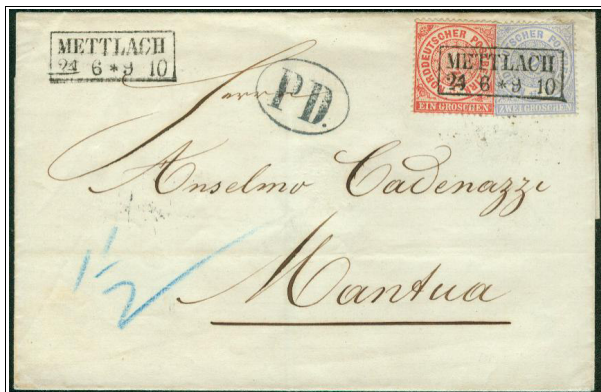 METTLACH
24 6 * 9 10
NORDDEUTSCHER POST
EIN GROSCHEN
NORDDEUTSCHER POST
ZWEI GROSCHEN
METTLACH
24 6 * 9 10
P.D.
Herrn
Anselmo Cadenazzi
Mantua
1/2